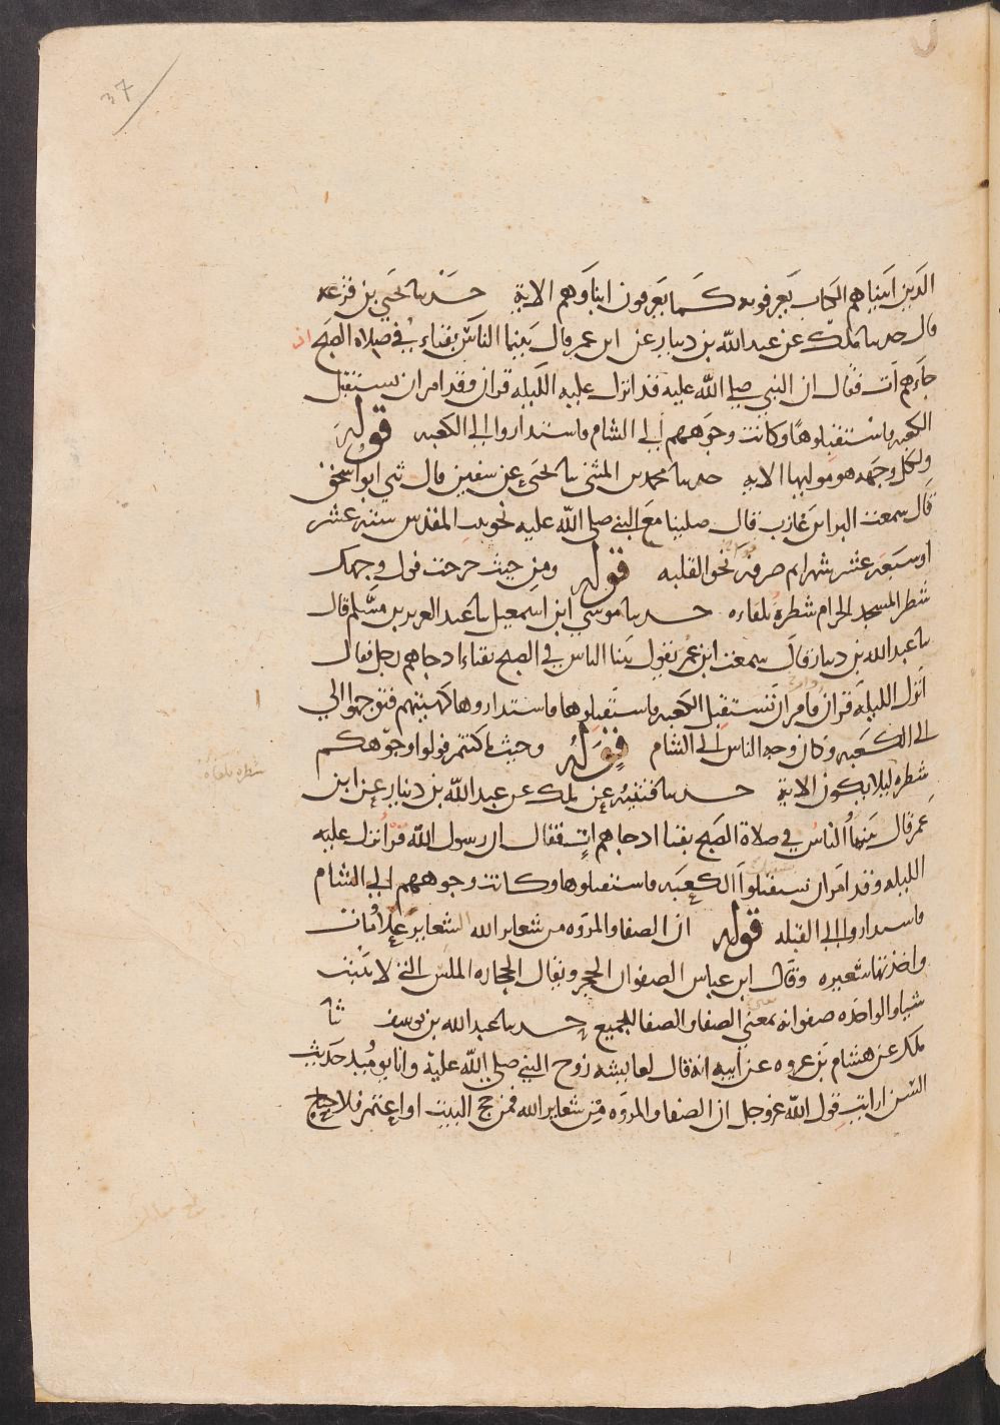 37
الذين اتيناهم الكتاب يعرفونه كما يعرفون ابناوهم الاية حدثنا يحيى بن قزعه
قال حدثنا ملك عن عبد الله بن دينار عن ابن عمر قال بينما الناس بقباء في صلاة الصبح اذ
جاءهم ات فقال ان النبي صلى الله عليه قد انزل عليه الليله قران وقد امر ان يستقبل
الكعبه فاستقبلوها وكانت وجوههم الى الشام فاستداروا الى الكعبه قوله
ولكل وجهه هو موليها الايه حدثنا محمد بن المثنى نا يحيى عن سفين قال ثني ابو اسحق
قال سمعت البرا بن عازب قال صلينا مع النبي صلى الله عليه نحو بيت المقدس سته عشر
او سبعه عشر شهرا ثم صرفه نحو القلبه قوله ومن حيث خرجت فول وجهك
شطر المسجد الحرام شطره تلقاءه حدثنا موسى ابن اسمعيل نا عبد العزيز بن مسلم قال
نا عبد الله بن دينار قال سمعت ابن عمر يقول بينا الناس في الصبح بقباء اذ جاهم رجل فقال
انزل الليله قران فامر ان تستقبل الكعبه فاستقبلوها فاستداروها كهيئتهم فتوجهوا الى
الى الكعبه وكان وجه الناس الى الشام قوله وحيث ما كنتم فولوا وجوهكم
شطره ليلا يكون الاية حدثنا قتيبه عن ملك عن عبد الله بن دينار عن ابن
شطره تلقاءه
عمر قال بينما الناس في صلاة الصبح بقبا اذ جاهم ات فقال ان رسول الله قد انزل عليه
الليله وقد امر ان يستقبلوا الكعبه فاستقبلوها وكانت وجوههم الى الشام
فاستداروا الى القبله قوله ان الصفا والمروه من شعاير الله الشعاير علامات
واحدتها شعيره وقال ابن عباس الصفوان الحجر ويقال الحجاره الملس التي لا تنبت
شيا والواحده صفوانه بمعنى الصفا والصفا للجميع حدثنا عبد الله بن يوسف ثنا
ملك عن هشام بن عروه عن ابيه انه قال لعايشه زوج النبي صلى الله عليه وانا يوميذ حديث
السن ارايت قول الله عز وجل ان الصفا والمروه من شعاير الله فمن حج البيت او اعتمر فلا جناح